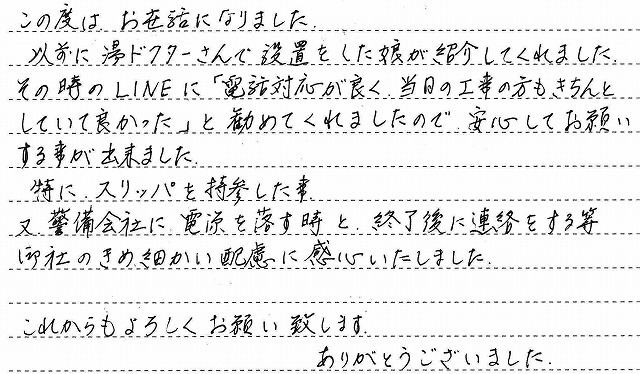 この度は お世話になりました.
以前に 湯ドクターさんで 設置をした娘が 紹介してくれました.
その時のLINEに「電話対応が良く. 当日の工事の方もきちんと
していて良かった」と 勧めてくれましたので. 安心してお願い
する事が出来ました.
特に. スリッパを持参した事.
又. 警備会社に 電源を落す時と. 終了後に連絡をする等
御社のきめ細かい配慮に 感心いたしました.
これからもよろしくお願い致します.
ありがとうございました.